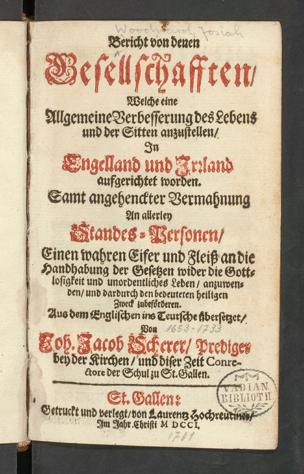 Woodward, Josiah
Bericht von denen
Gesellschafften/
Welche eine
Allgemeine Verbesserung des Lebens
und der Sitten anzustellen/
In
Engelland und Irrland
aufgerichtet worden.
Samt angehenckter Vermahnung
An allerley
Standes-Personen/
Einen wahren Eifer und Fleiß an die
Handhabung der Gesetzen wider die Gott-
losigkeit und unordentliches Leben/ anzuwen-
den/ und dardurch den bedeuteten heiligen
Zweck zubefördern.
Aus dem Englischen ins Teutsche übersetzet/
Von
1653-1733
Joh. Jacob Scherer/ Prediger
bey der Kirchen/ und diser Zeit Conre-
ctore der Schul zu St. Gallen.
VADIAN.
BIBLIOTH
St. Gallen:
Getruckt und verlegt/ von Laurentz Hochreutiner/
Im Jahr Christi M DCCI.
1701